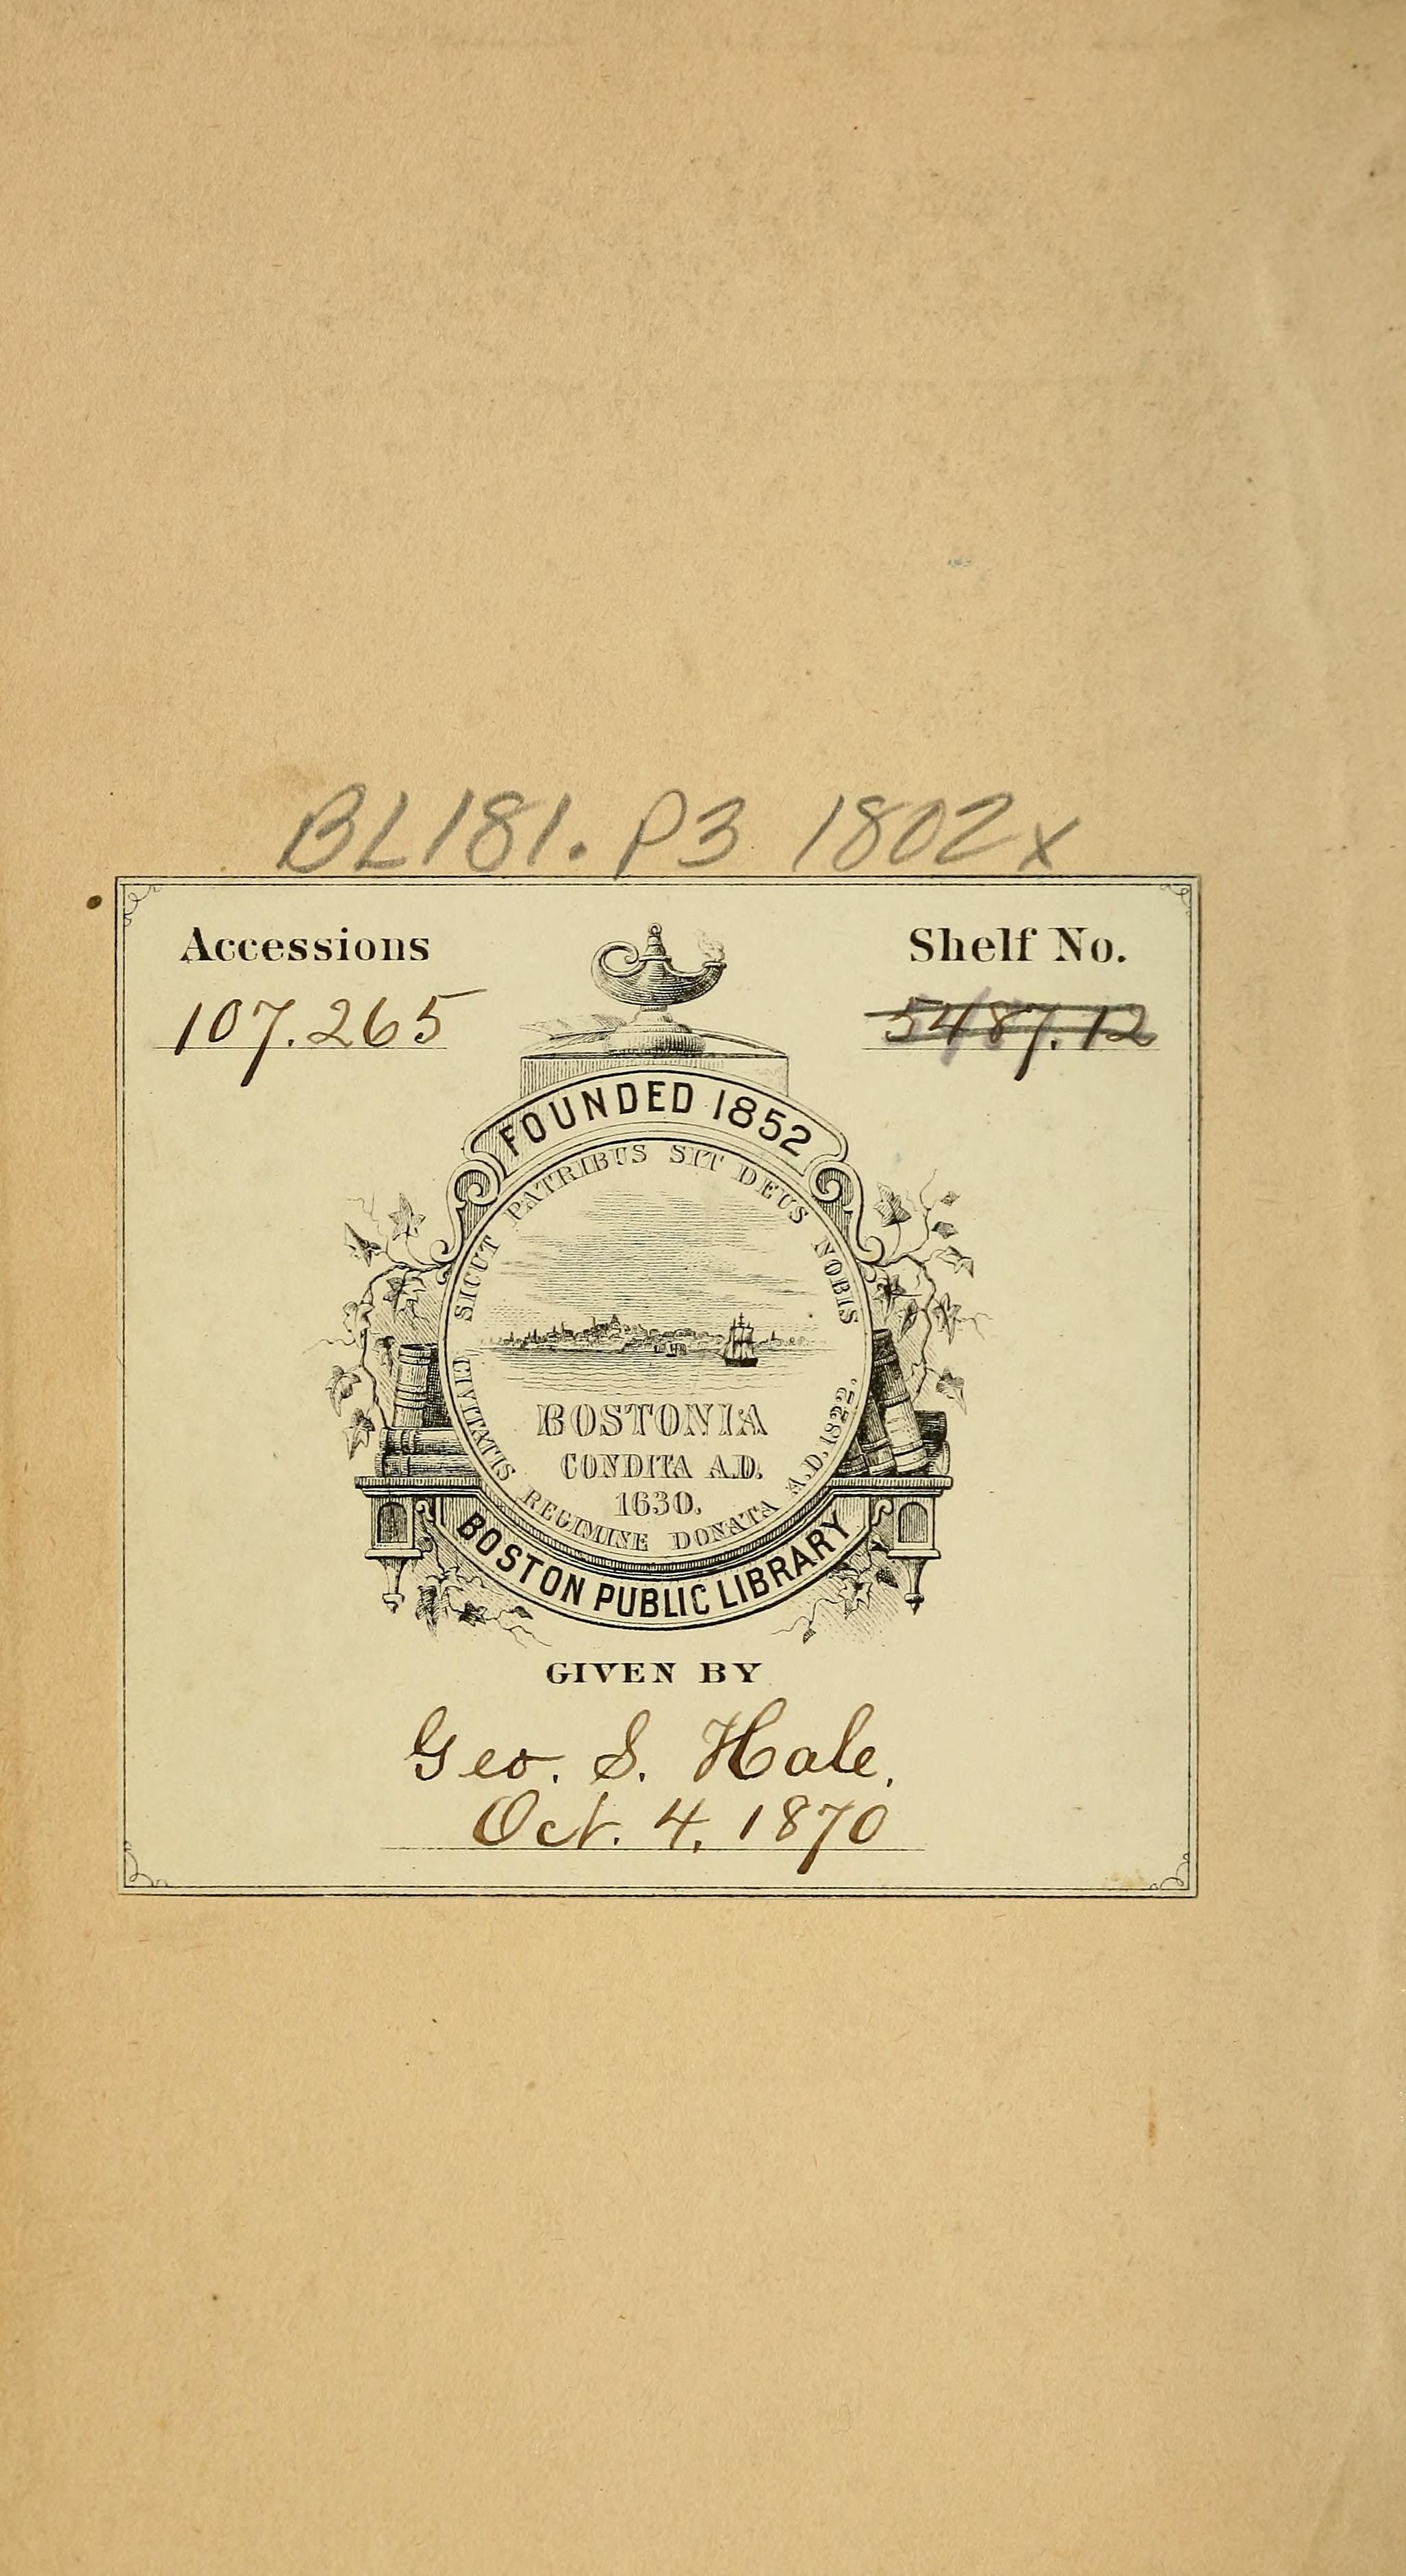 BL181.P3 1802x
Accessions
107.265
Shelf No.
5487.12
FOUNDED 1852
SICUT PATRIBUS SIT DEUS NOBIS
BOSTONIA
CONDITA A.D.
1630.
CIVITATIS REGIMINE DONATA A.D. 1822.
BOSTON PUBLIC LIBRARY
GIVEN BY
Geo. S. Hale.
Oct. 4, 1870